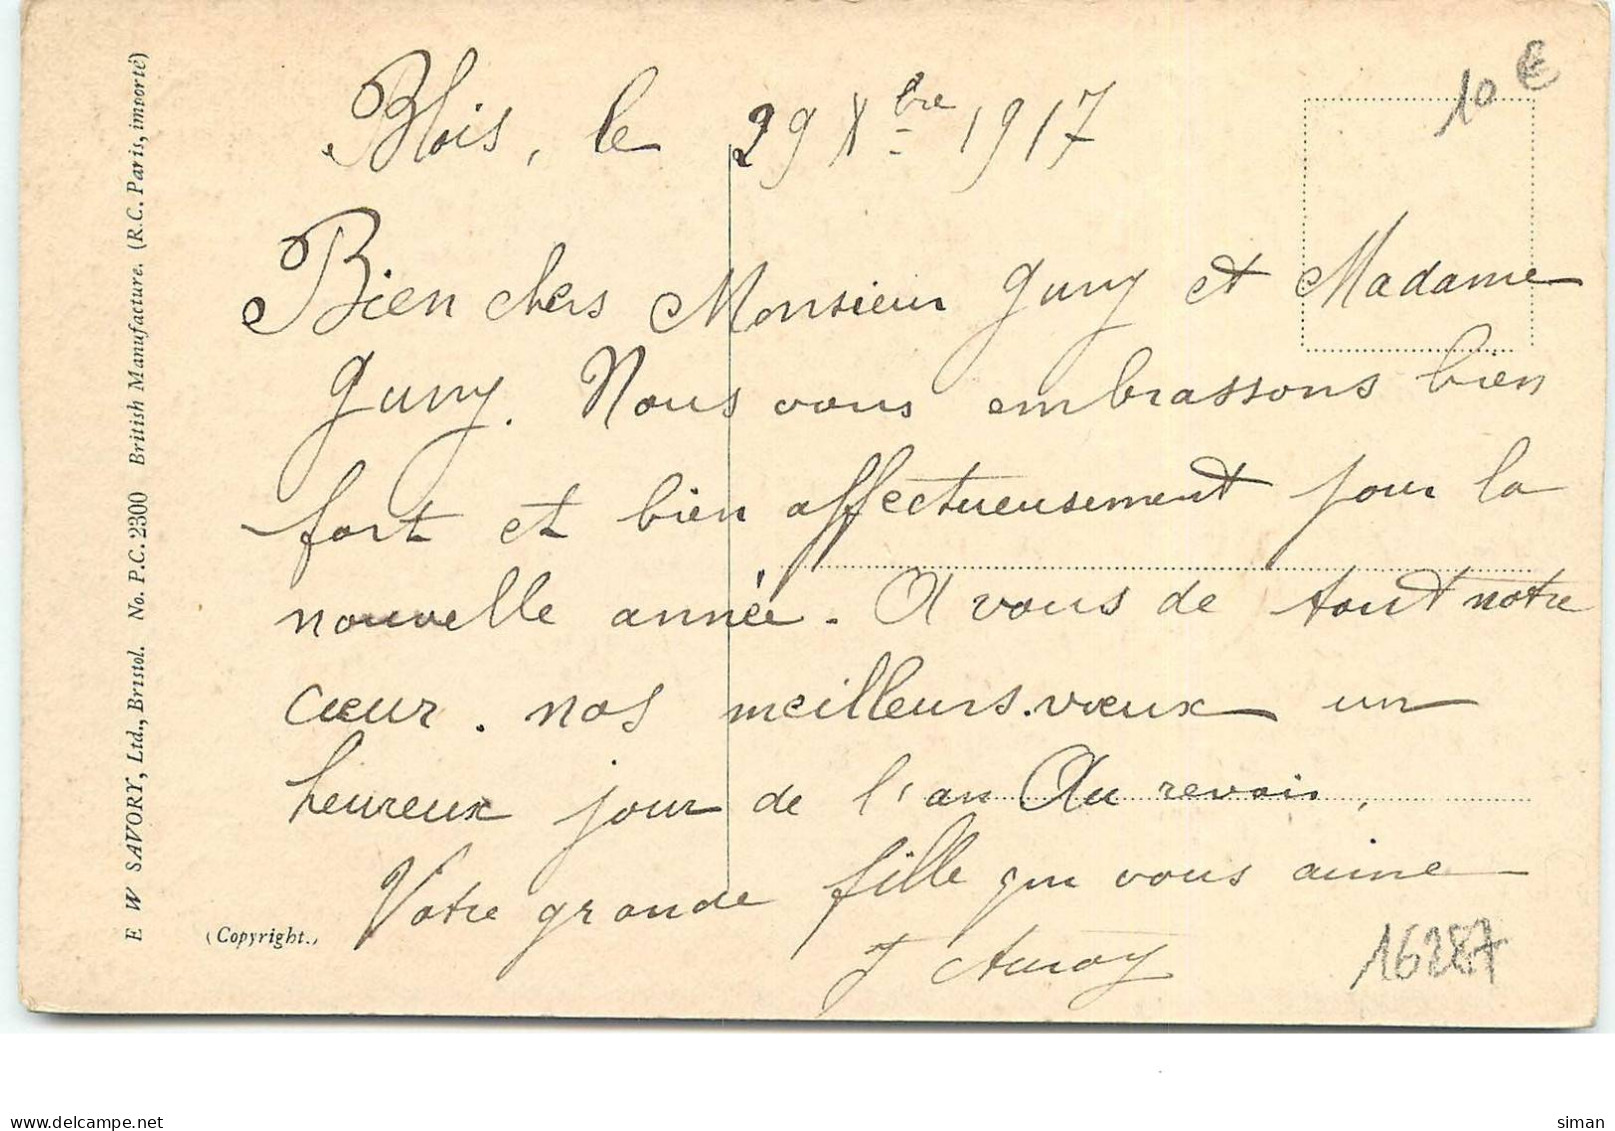 10 €
Blois, le 29 Xbre 1917
Bien chers Monsieur Guny et Madame
Guny. Nous vous embrassons bien
fort et bien affectueusement pour la
nouvelle année. A vous de tout notre
cœur. nos meilleurs vœux un
heureux jour de l'an Au revoir,
Votre grande fille qui vous aime
16287
(Copyright.)
E W SAVORY, Ltd., Bristol. No. P.C. 2300 British Manufacture. (R.C. Paris, importé)
siman